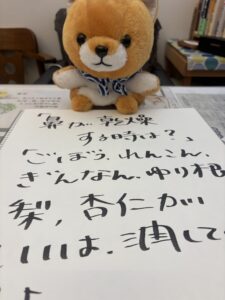 「鼻が乾燥
する時は？」
ごぼう、れんこん、
ぎんなん、ゆり根
梨、杏仁が
いいよ、潤して